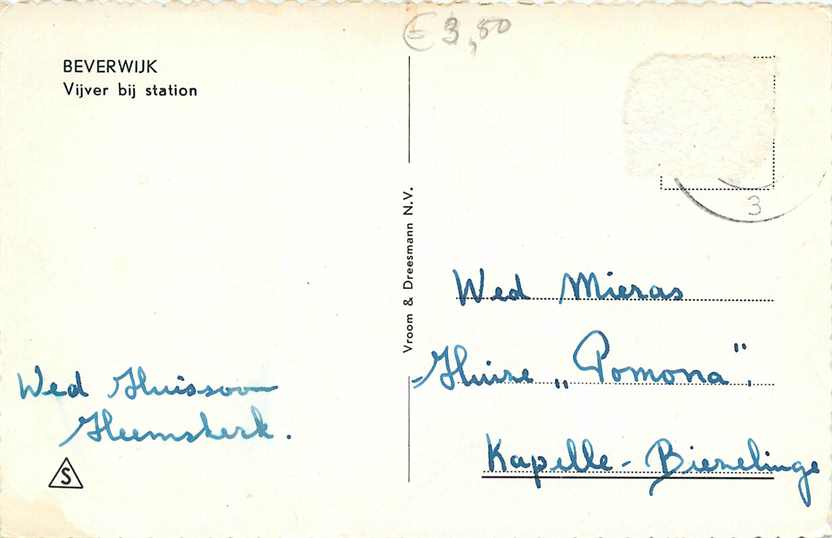 € 3,50
BEVERWIJK
Vijver bij station
3
Vroom & Dreesmann N.V.
Wed Mieras
Huize „Pomona”.
Kapelle-Biezelinge
Wed Huissoon
Heemskerk.
S